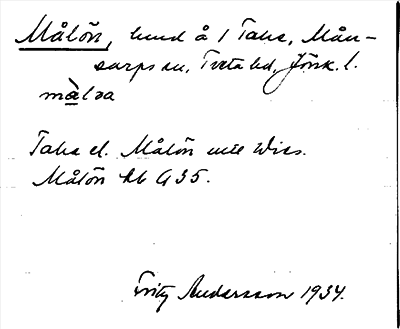 Målön, hund å 1 Tahe, Mån-
sarps sn, Tveta hd, Jönk. l.
målöa
Tahe el. Målön
Målön kb G 35.
Fritz Andersson 1934.